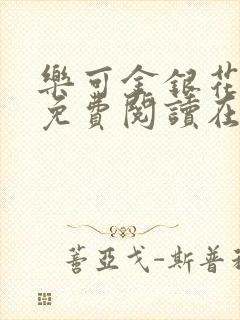 樂可金銀花
免費閱讀在
蓍亞戈-斯普